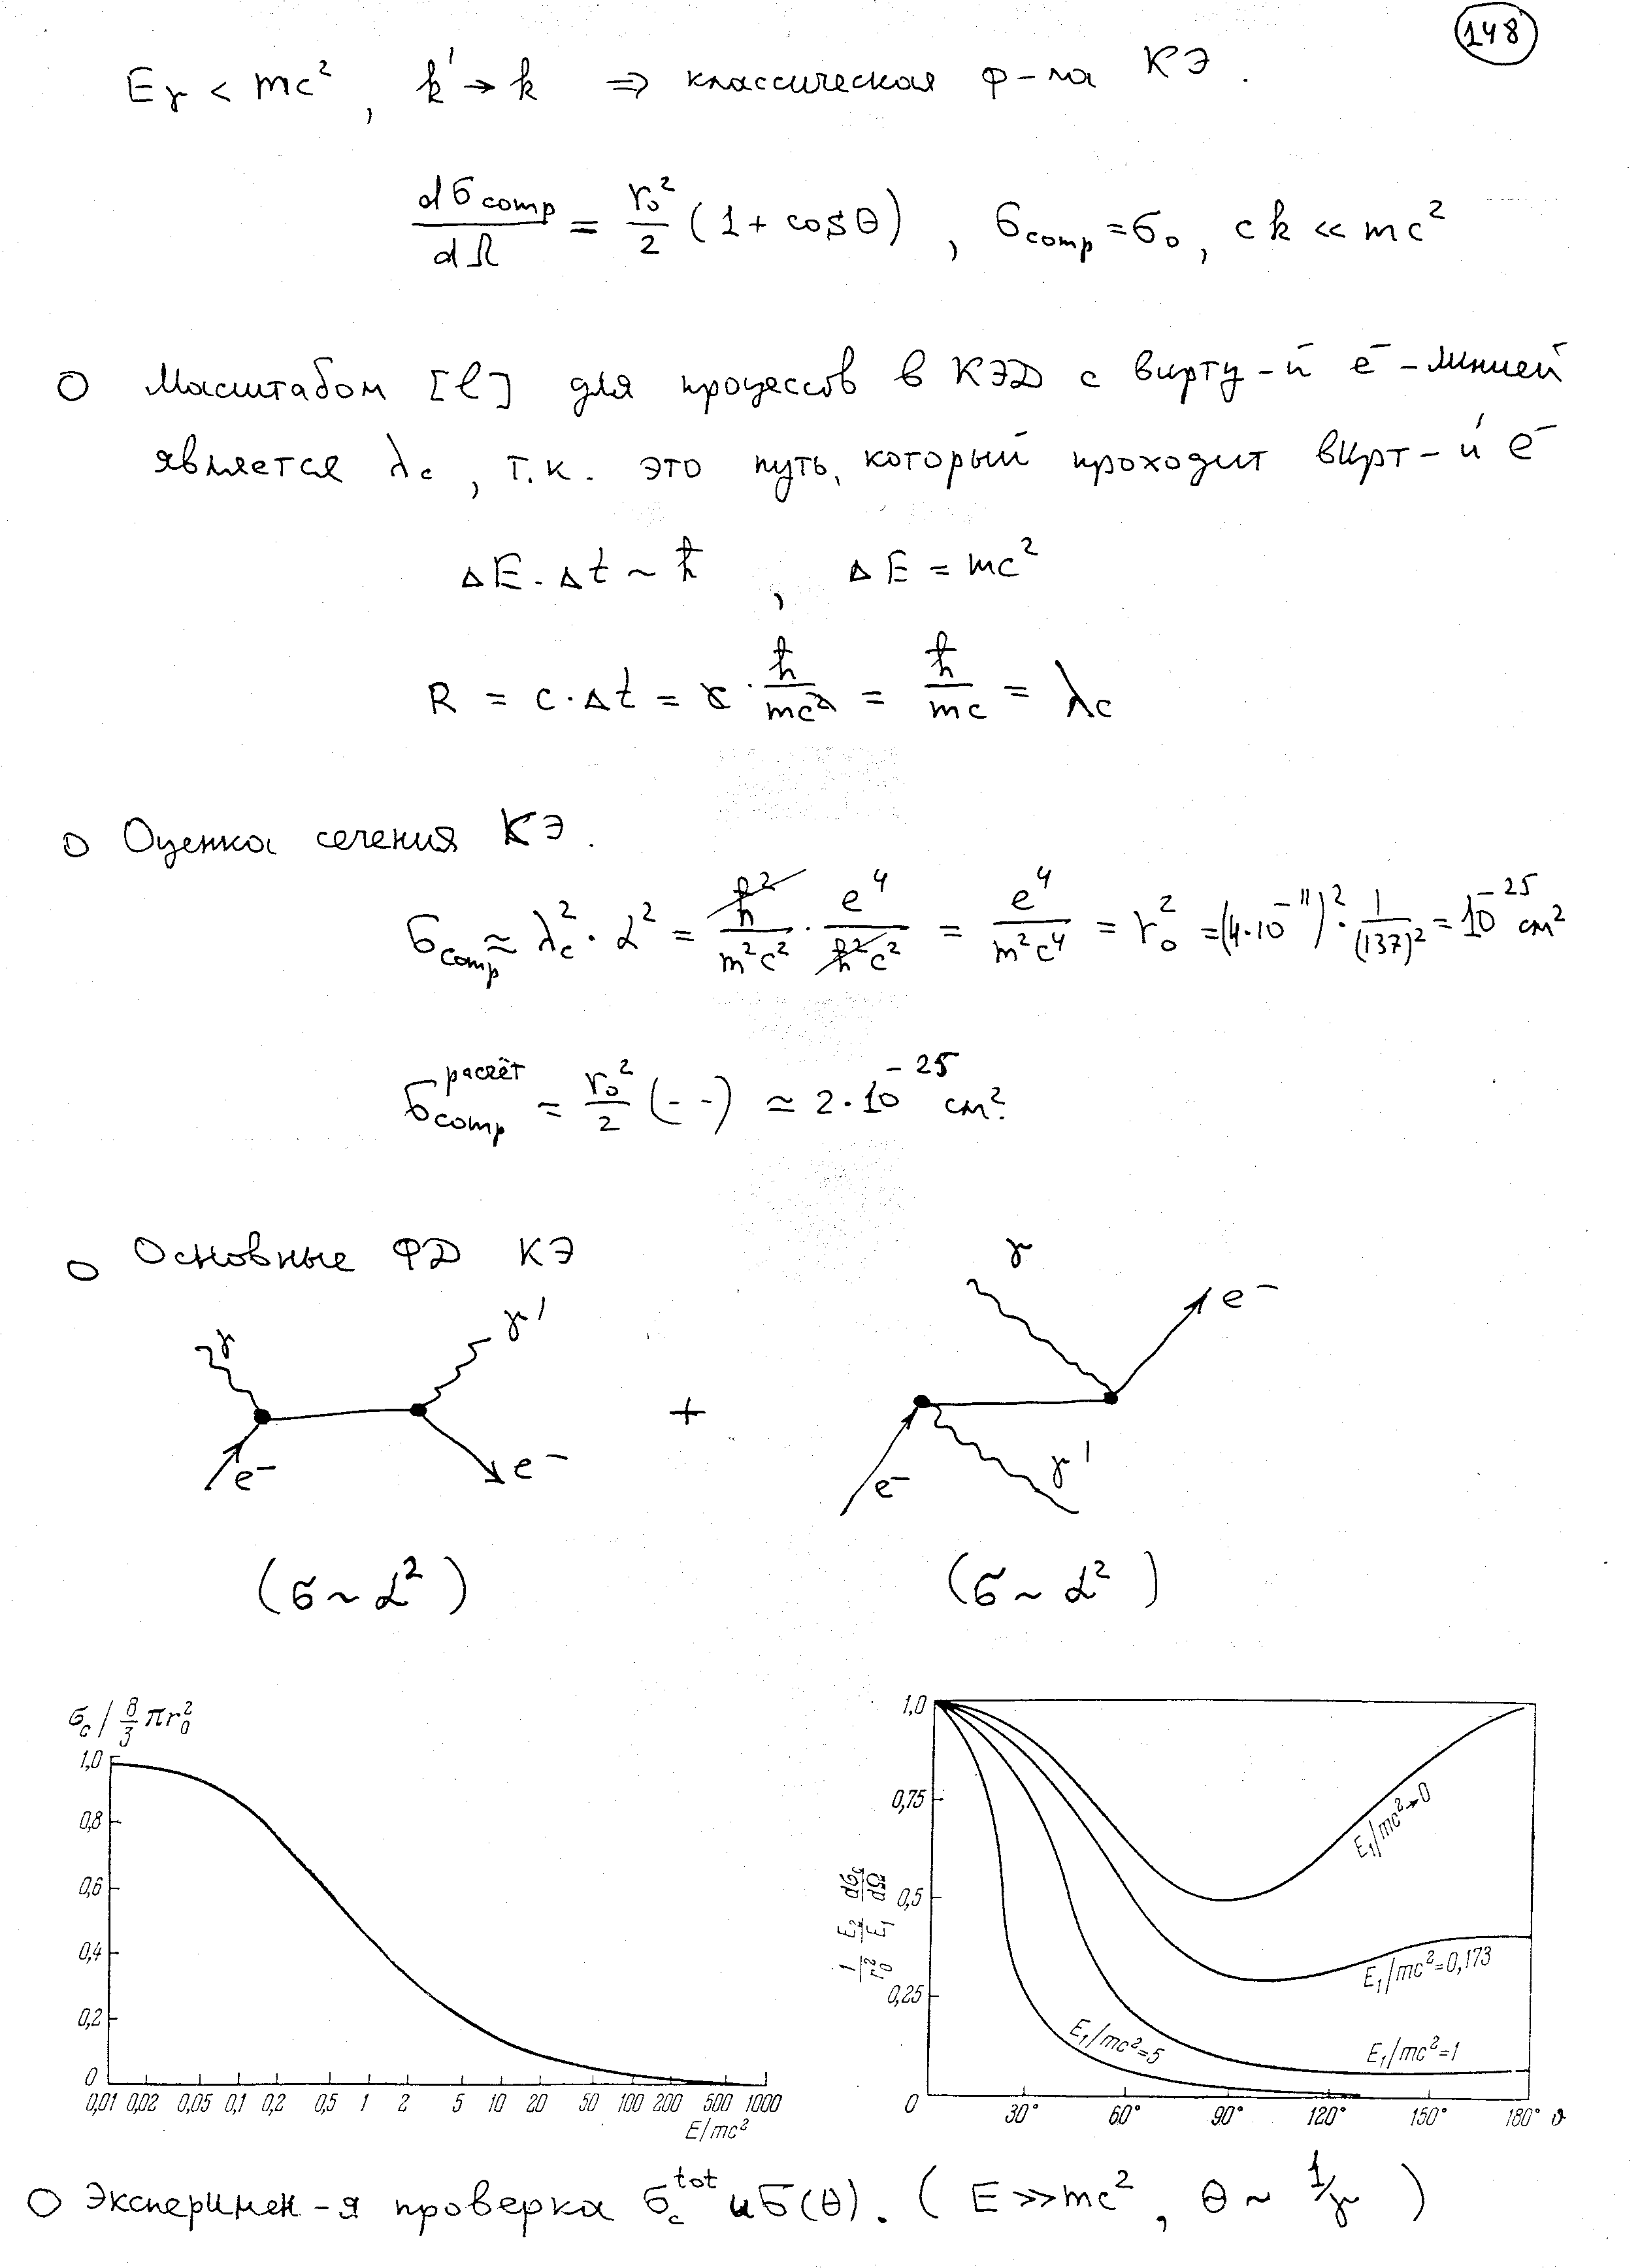 148
Eγ < mc², k' → k ⇒ классическая ф-ла КЭ.
dσcomp/dΩ = r₀²/2 (1 + cosθ), σcomp = σ₀, ck ≪ mc²
○ Масштабом [ℓ] для процессов в КЭД с вирту-й e⁻-линией
является λc, т.к. это путь, который проходит вирт-й e⁻
ΔE · Δt ~ ħ, ΔE = mc²
R = c·Δt = c · ħ/mc² = ħ/mc = λc
○ Оценка сечения КЭ.
σcomp ≈ λc² · α² = ħ²/m²c² · e⁴/ħ²c² = e⁴/m²c⁴ = r₀² = (4·10⁻¹¹)² · 1/(137)² = 10⁻²⁵ см²
σcomp расчёт = r₀²/2 (- -) ≃ 2·10⁻²⁵ см².
○ Основные ФД КЭ
γ γ' e⁻ e⁻ + γ e⁻ e⁻ γ'
(σ ~ α²) (σ ~ α²)
σc / 8/3 πr₀²
1,0
0,8
0,6
0,4
0,2
0
0,01 0,02 0,05 0,1 0,2 0,5 1 2 5 10 20 50 100 200 500 1000
E/mc²
1/r₀² E₂/E₁ dσc/dΩ
1,0
0,75
0,5
0,25
0
E₁/mc²→0
E₁/mc²=0,173
E₁/mc²=1
E₁/mc²=5
30° 60° 90° 120° 150° 180° ϑ
○ Эксперимен-я проверка σc tot и σ(θ). (E ≫ mc², θ ~ 1/γ)